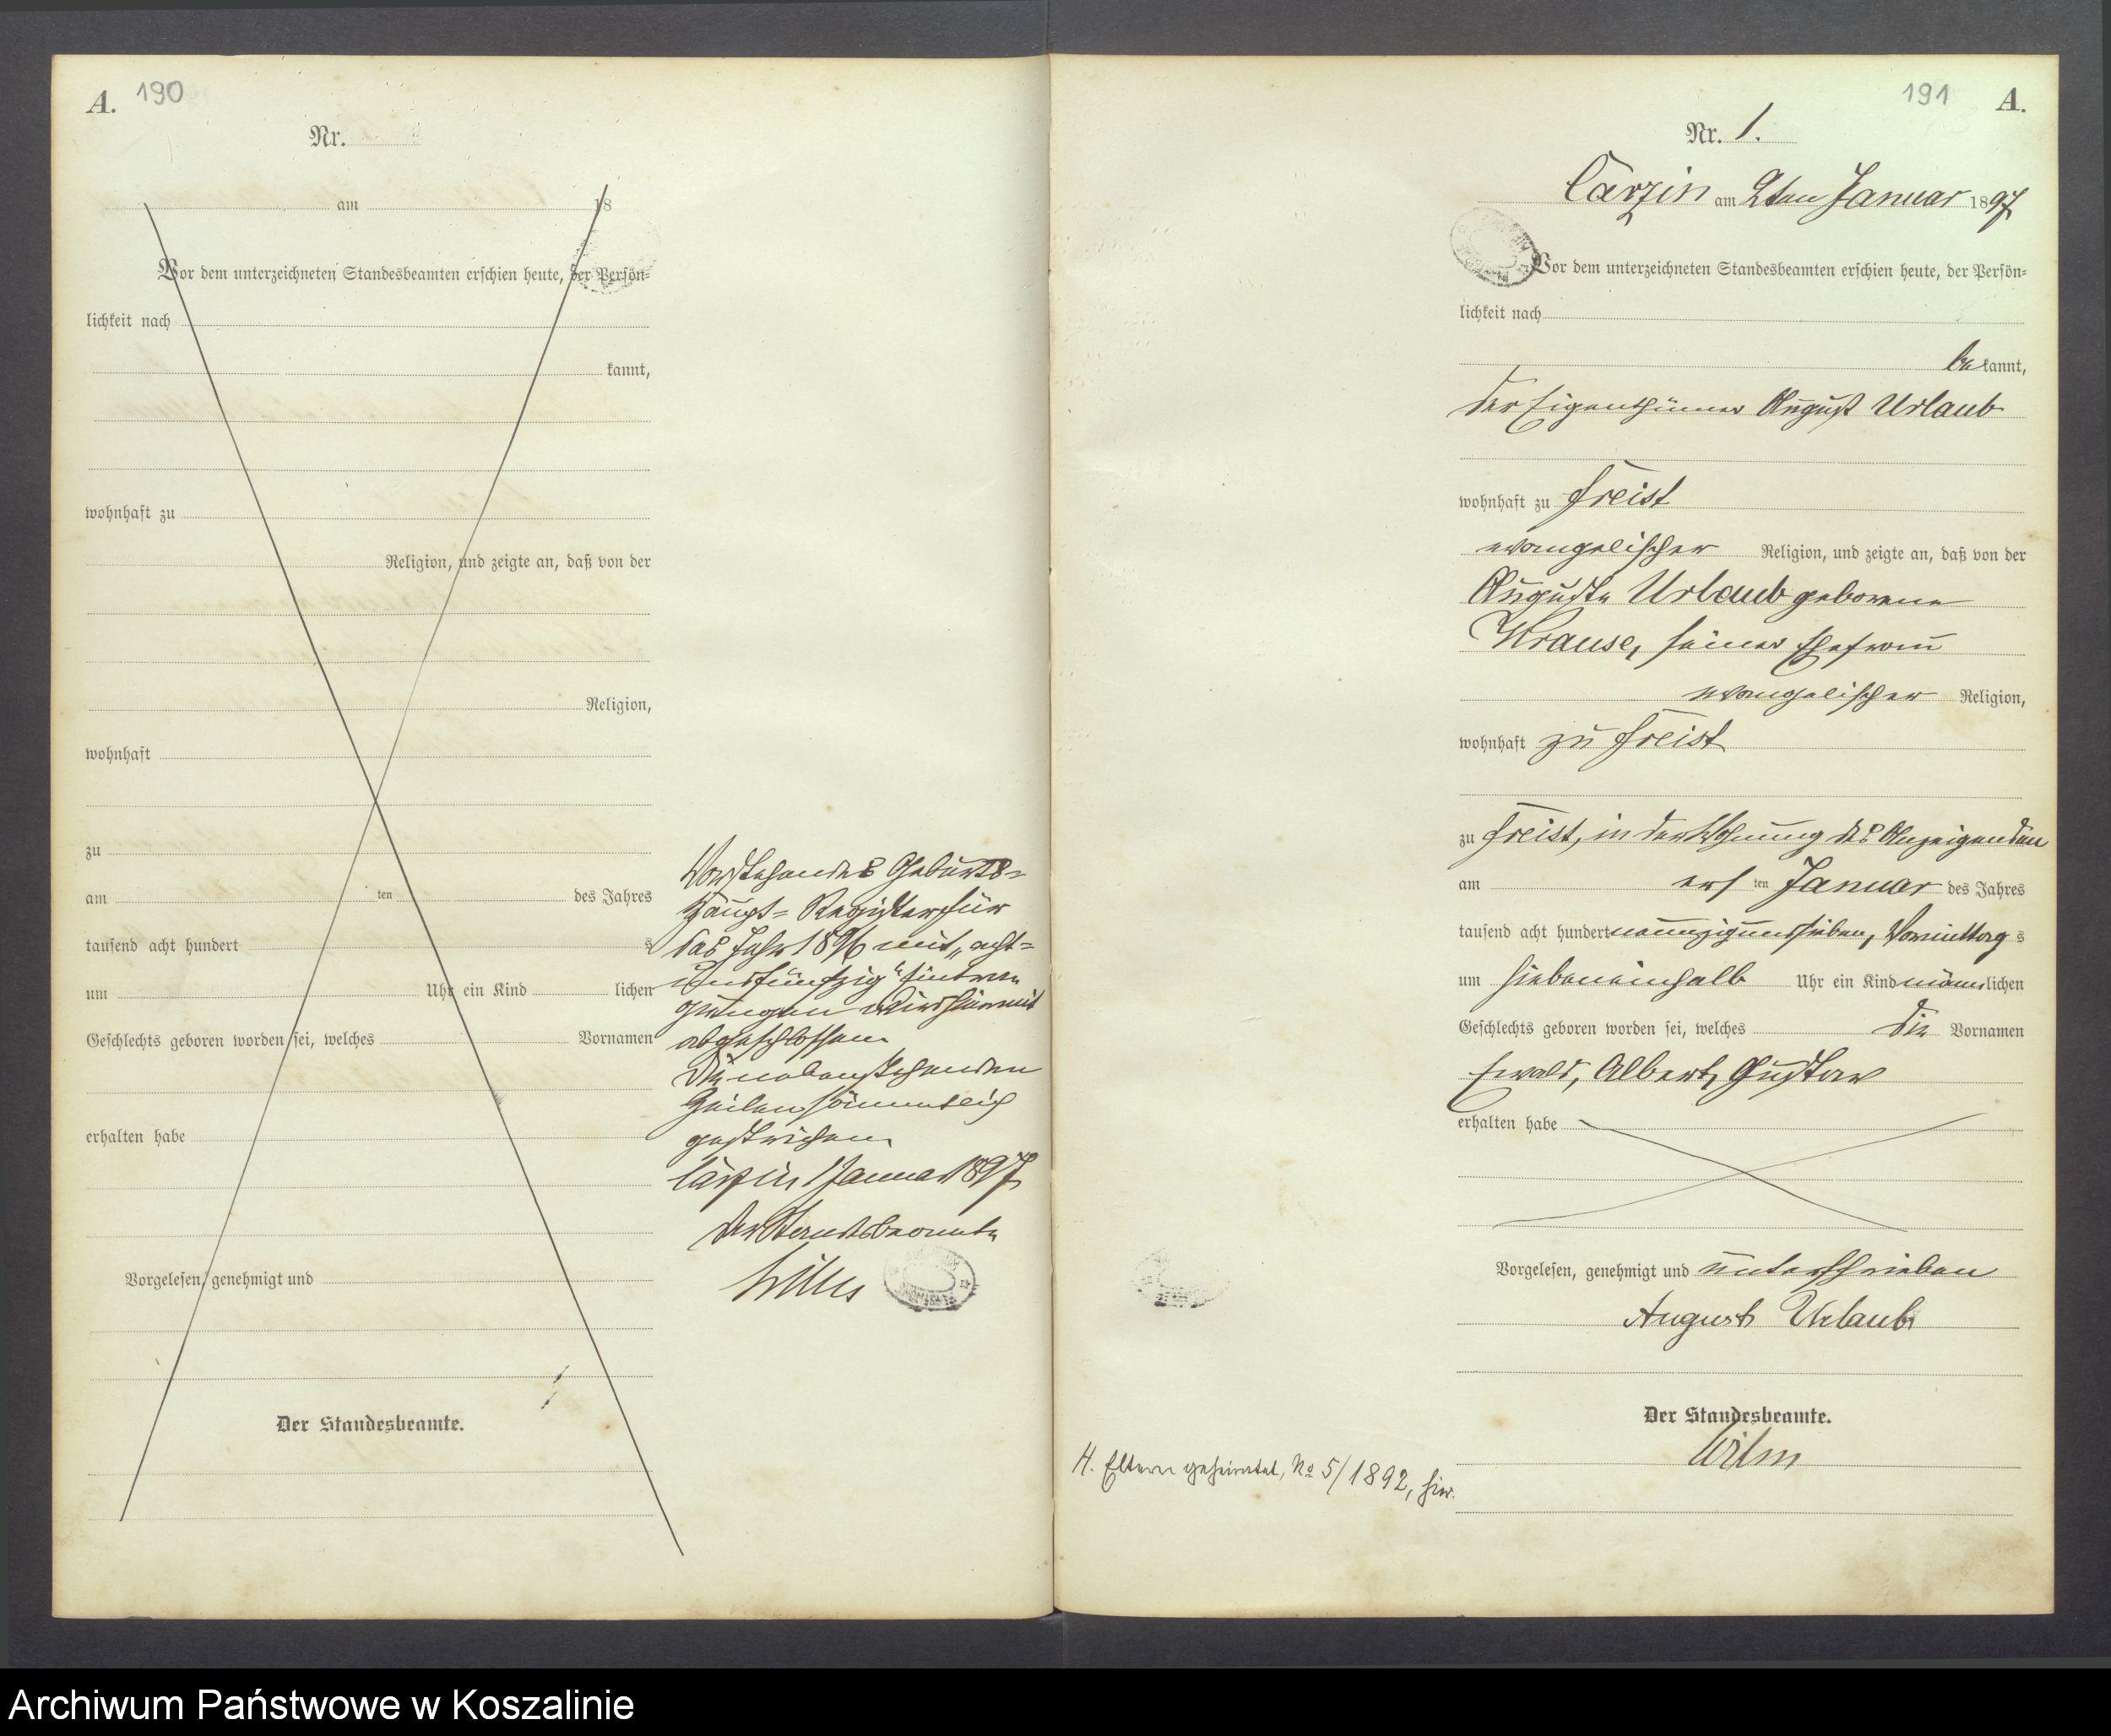 A. 190
Nr.
am 18
Vor dem unterzeichneten Standesbeamten erschien heute, der Persön-
lichkeit nach
kannt,
wohnhaft zu
Religion, und zeigte an, daß von der
Religion,
wohnhaft
zu
am ten des Jahres
tausend acht hundert s
um Uhr ein Kind lichen
Geschlechts geboren worden sei, welches Vornamen
erhalten habe
Vorgelesen, genehmigt und
Der Standesbeamte.
Vorstehendes Geburts-
Haupt-Register für
das Jahr 1896 mit „acht-
undfünfzig" Eintra-
gungen wird hiermit
abgeschlossen.
Die nebenstehenden
Zeilen sämmtlich
gestrichen.
Carzin 1 Januar 1897
Der Standesbeamte
191 A.
Nr. 1.
Carzin am 2ten Januar 1897
Vor dem unterzeichneten Standesbeamten erschien heute, der Persön-
lichkeit nach
bekannt,
der Eigenthümer August Urlaub
wohnhaft zu Freist
evangelischer Religion, und zeigte an, daß von der
Auguste Urlaub geborene
Krause, seiner Ehefrau
evangelischer Religion,
wohnhaft zu Freist
zu Freist, in der Wohnung des Anzeigenden
am ersten Januar des Jahres
tausend acht hundert neunzigundsieben, Vormittags
um siebeneinhalb Uhr ein Kind männlichen
Geschlechts geboren worden sei, welches die Vornamen
Ewald, Albert, Gustav
erhalten habe
Vorgelesen, genehmigt und unterschrieben
August Urlaub
Der Standesbeamte.
Wilm
H. Eltern geheiratet, No 5/1892, hier.
Archiwum Państwowe w Koszalinie